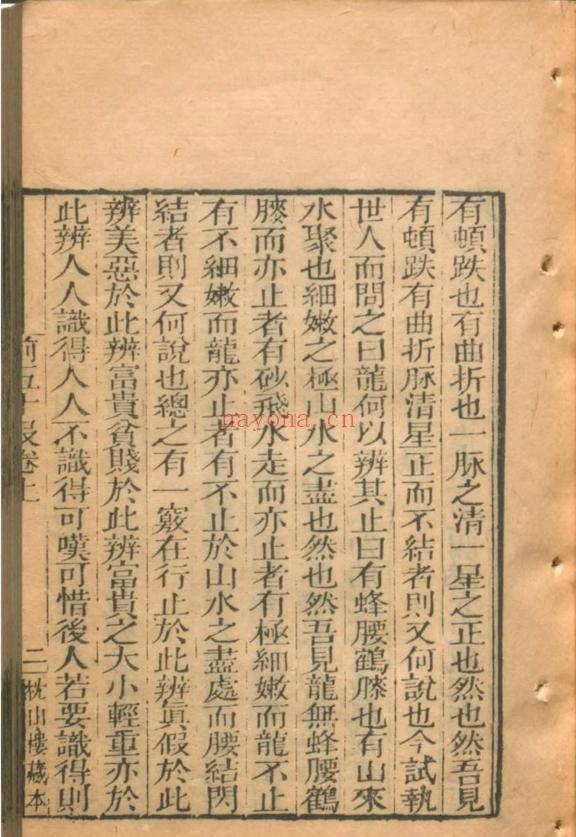 有頓跌也有曲折也一脉之清一星之正也然也然吾見
有頓跌有曲折脉清星正而不結者則又何說也今試執
世人而問之曰龍何以辨其止曰有蜂腰鶴膝也有山來
水聚也細嫩之極山水之盡也然也然吾見龍無蜂腰鶴
膝而亦止者有砂飛水走而亦止者有極細嫩而龍不止
有不細嫩而龍亦止者有不止於山水之盡處而腰結閃
結者則又何說也總之有一竅在行止於此辨眞假於此
辨美惡於此辨富貴貧賤於此辨富貴之大小輕重亦於
此辨人人識得人人不識得可嘆可惜後人若要識得則
前五十段卷上 二 枕山樓藏本
nayona.cn